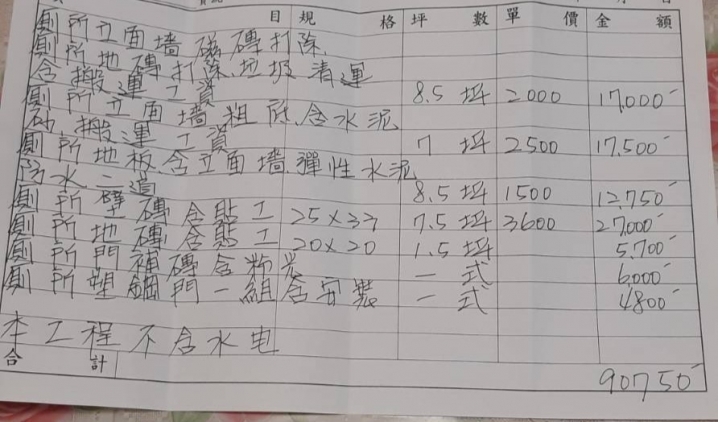 目 規 格 坪 數 單 價 金 額
廁所立面墻磁磚打除.
廁所地磚打除.垃圾清運
含搬運工資 8.5坪 2000 17,000
廁所立面墻粗底.含水泥
砂.搬運工資 7坪 2500 17,500
廁所地板.含立面墻.彈性水泥
防水二道 8.5坪 1500 12,750
廁所壁磚含貼工 25×33 7.5坪 3600 27,000
廁所地磚含貼工 20×20 1.5坪 5,700
廁所門補磚含粉光 一式 6,000
廁所塑鋼門一組含安裝 一式 4800
本工程不含水电
合計 90750